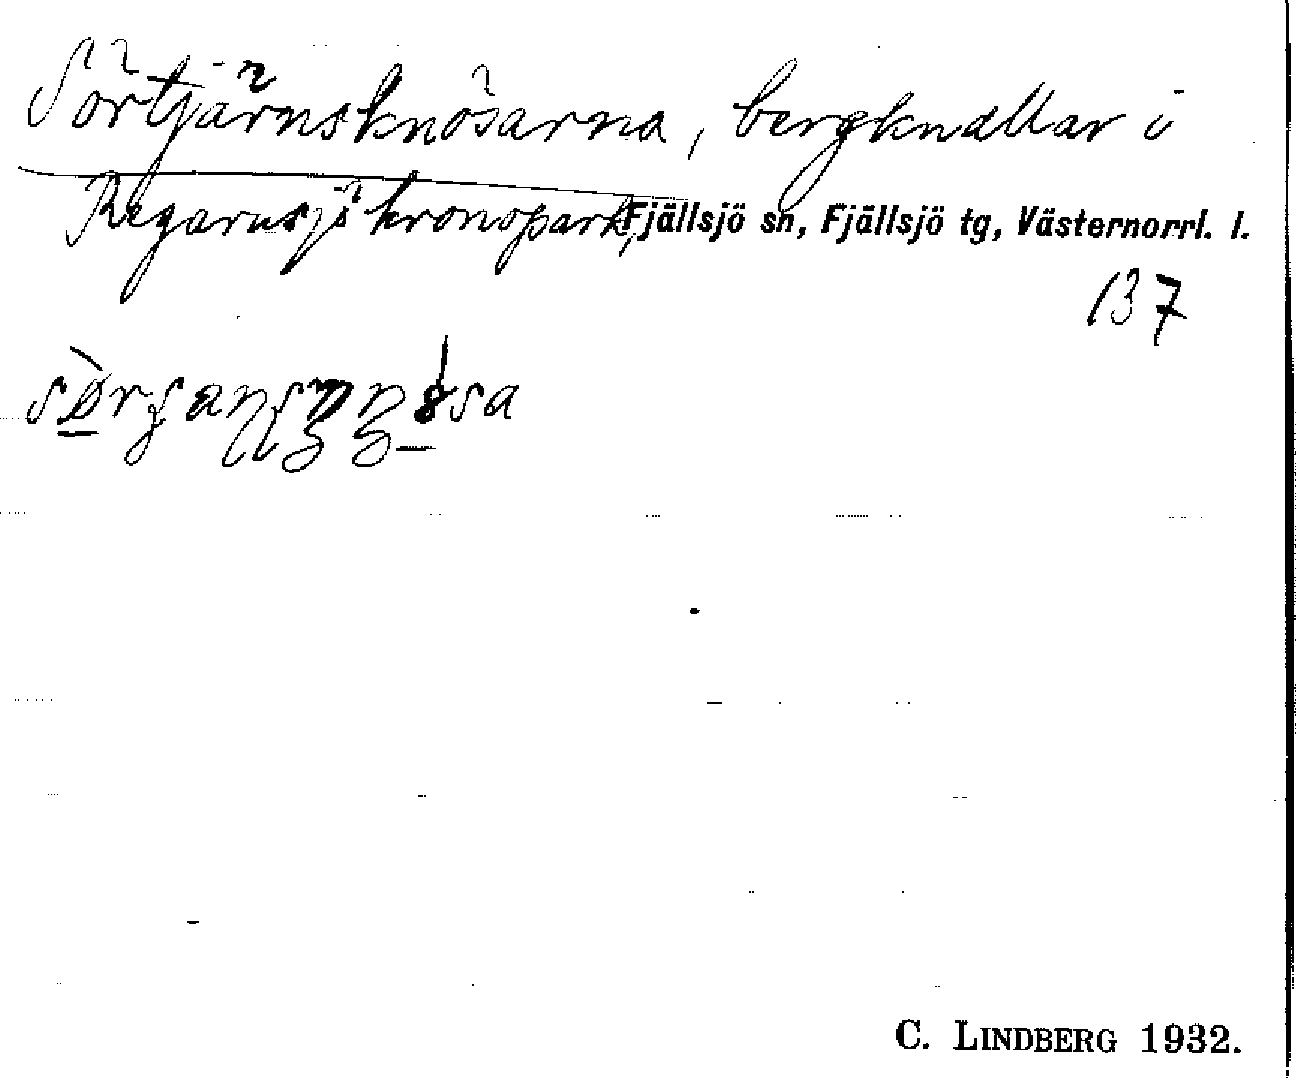 Sörtjärnsknösarna, bergknallar i
Regarnsjö kronopark, Fjällsjö sn, Fjällsjö tg, Västernorrl. l.
137
C. LINDBERG 1932.